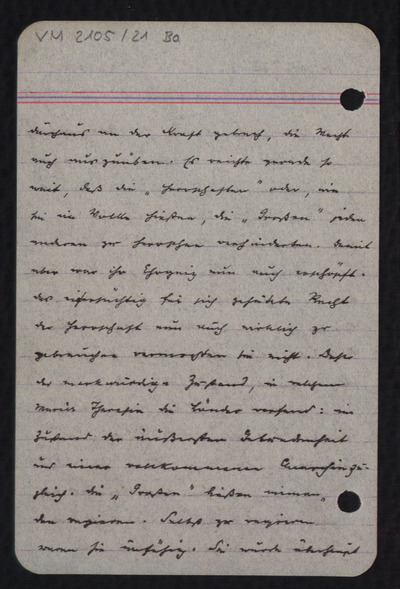 VM 2105/21 Bo
durchaus an der Kraft gebrach, die Macht
auch auszuüben. Es reichte gerade so
weit, daß die „Herrschaften" oder, wie
sie im Volke hießen, die „Großen" jeden
anderen zu herrschen verhinderten. Damit
aber war ihr Ehrgeiz nun auch erschöpft.
das eifersüchtig bei sich gehütete Recht
der Herrschaft nun auch wirklich zu
gebrauchen vermochten sie nicht. Daher
der merkwürdige Zustand, in welchem
Maria Theresia die Länder vorfand: im
Zustand der äußersten Gebundenheit
und einer vollkommenen Anarchie zu-
gleich. die „Großen" ließen niman-
den regieren. Selbst zu regieren
waren sie unfähig. Sie wurde überhaupt